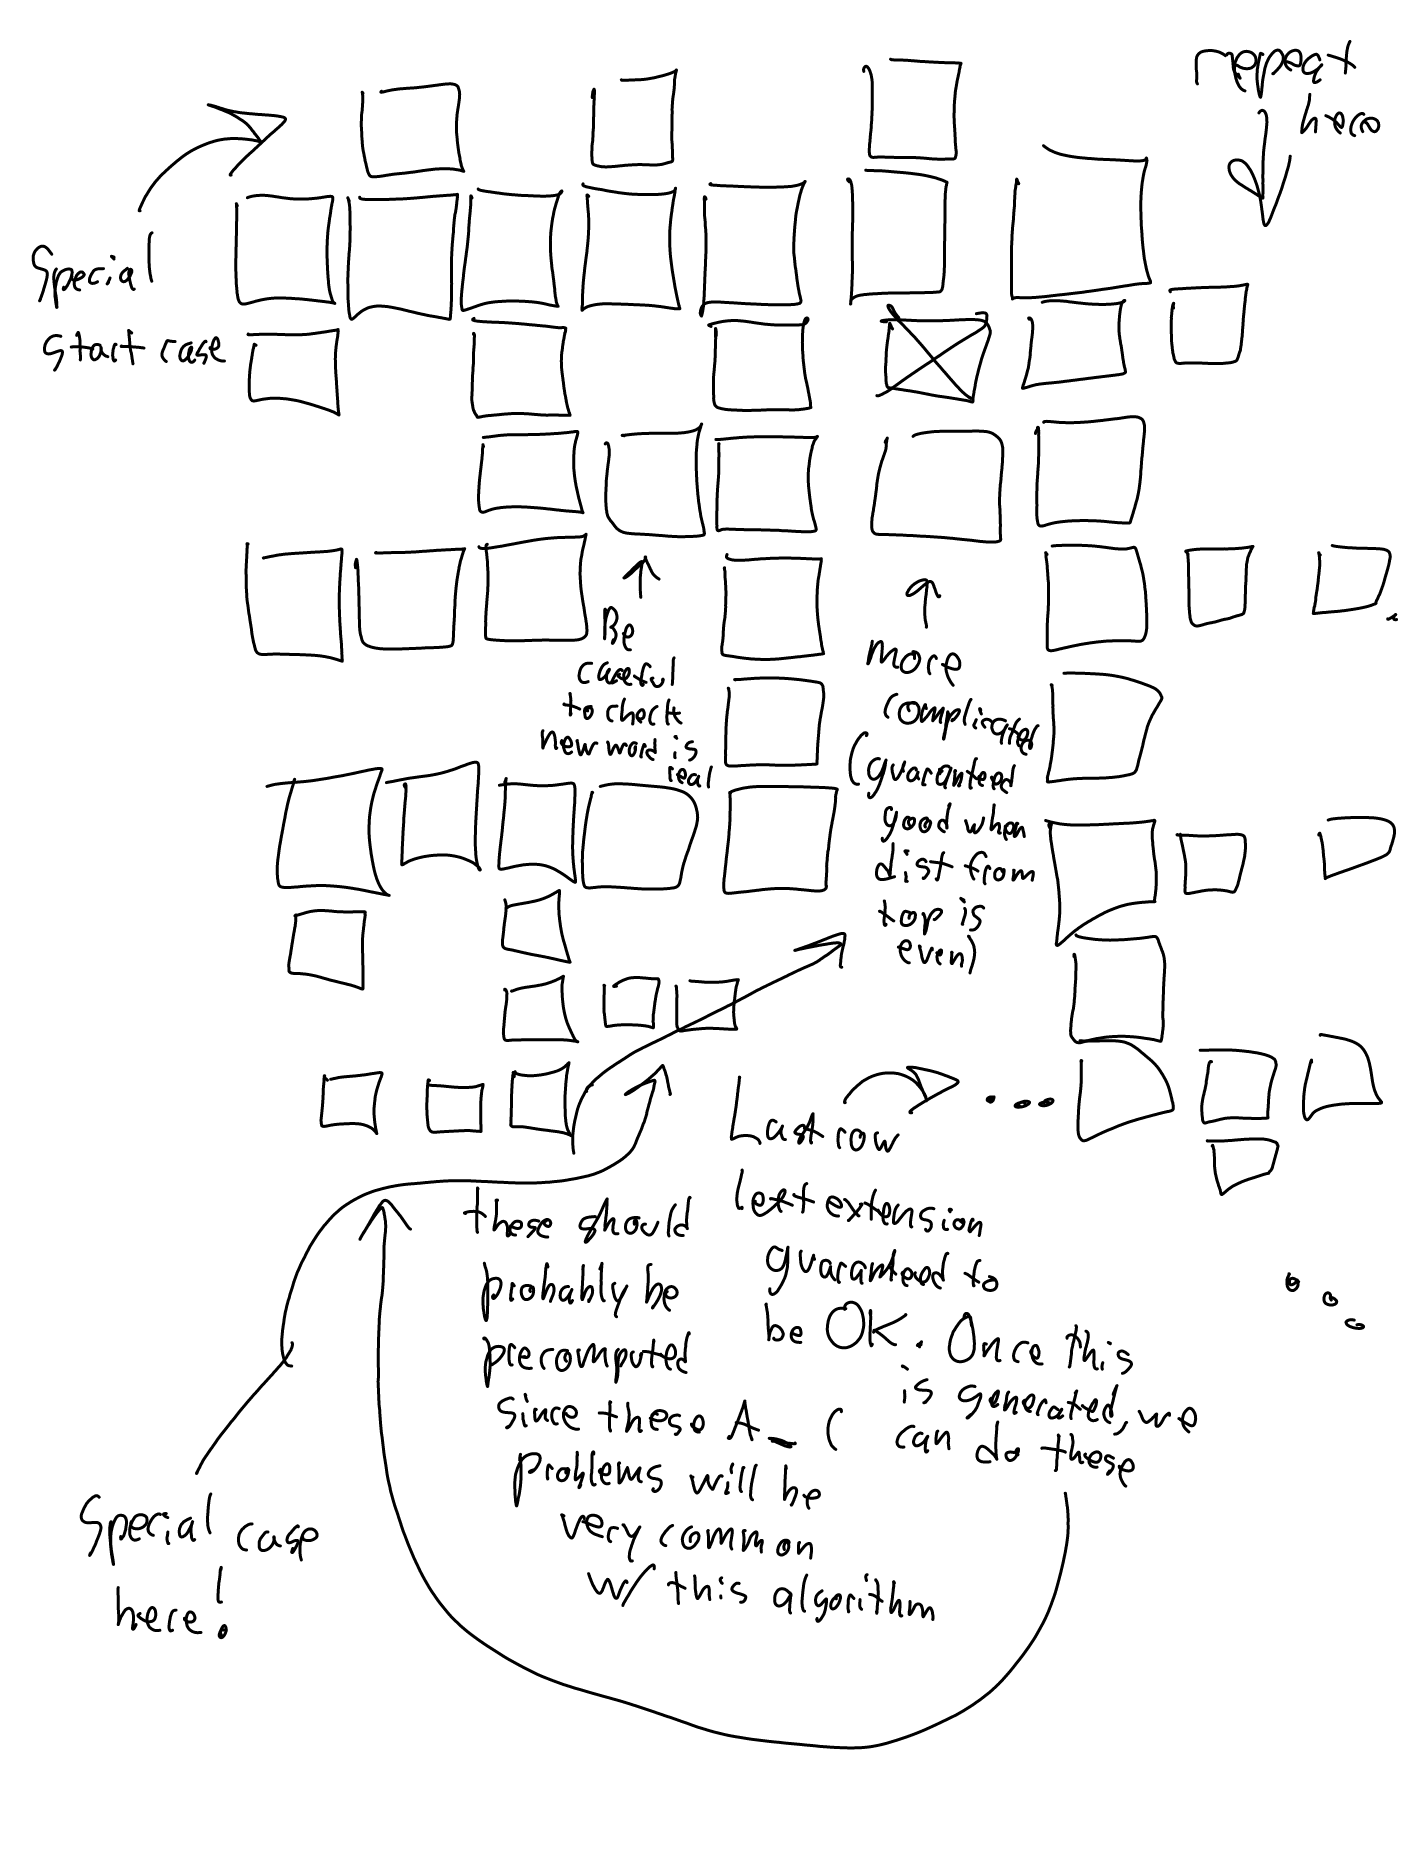 repeat
here
Special
start case
Be
careful
to check
new word is
real
more
complicated
(guaranteed
good when
dist from
top is
even)
Last row
left extension
guaranteed to
be OK. Once this
is generated, we
can do these
these should
probably be
precomputed
since these A_C
problems will be
very common
w/ this algorithm
Special case
here!